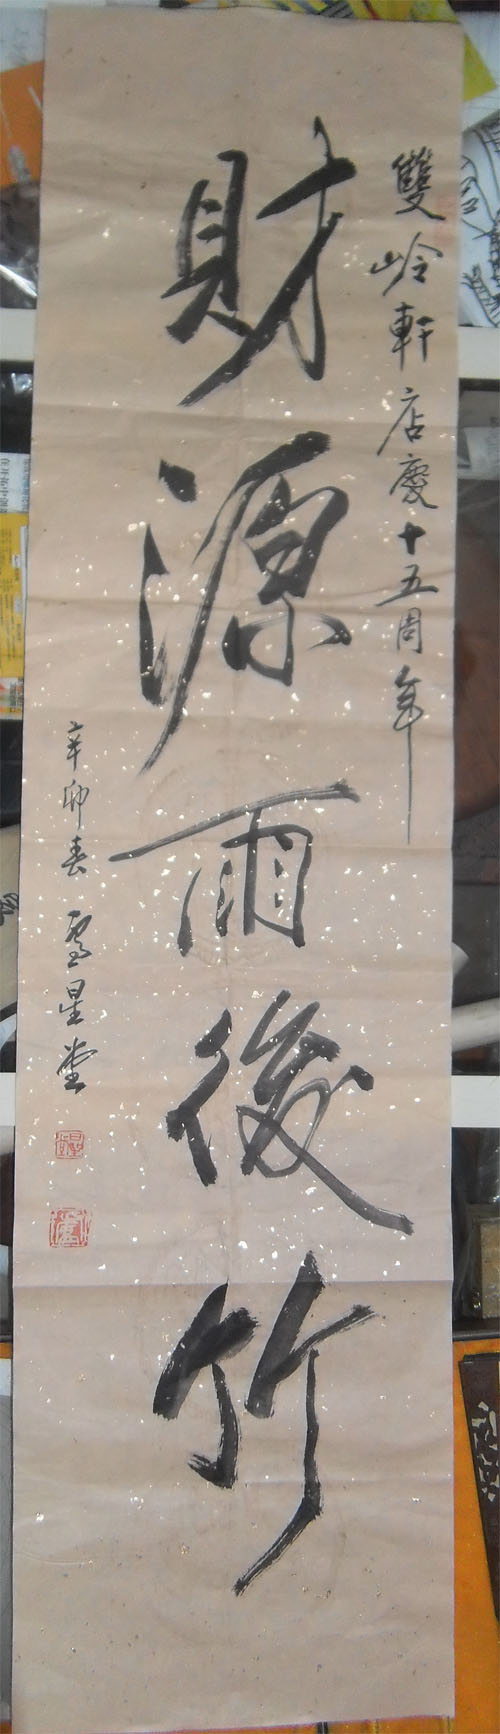 雙岭軒店慶十五周年
財源雨後竹
辛卯春 盧星堂
星堂
盧